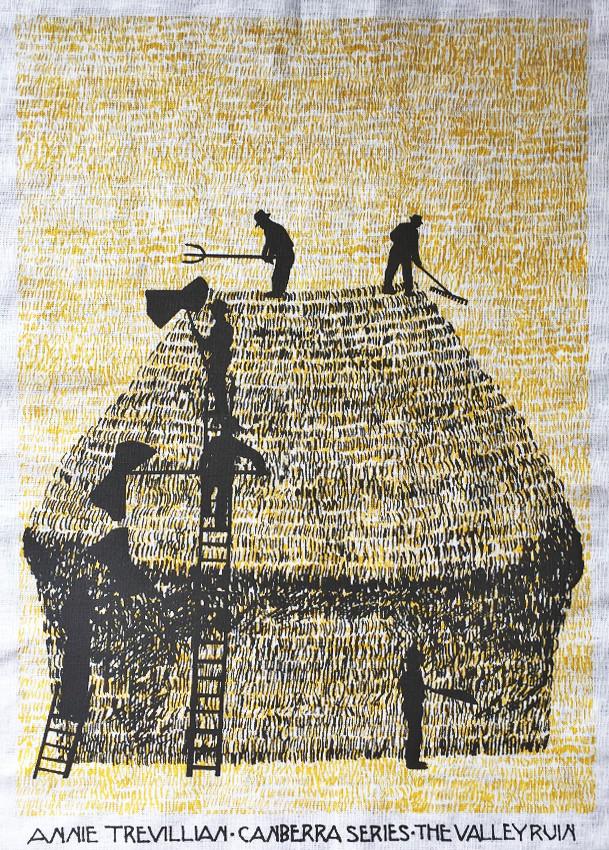 ANNIE TREVILLIAN·CANBERRA SERIES·THE VALLEY RUIN